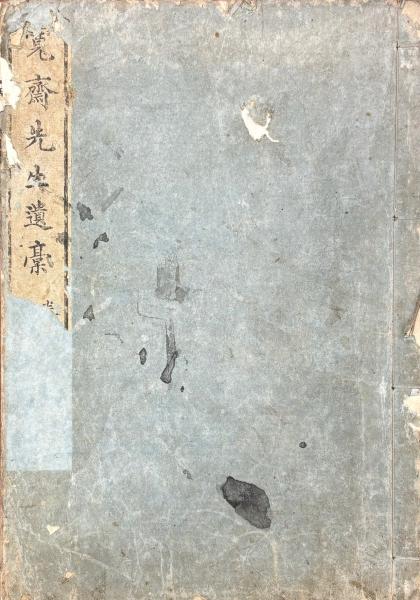 寛齋先生遺稾